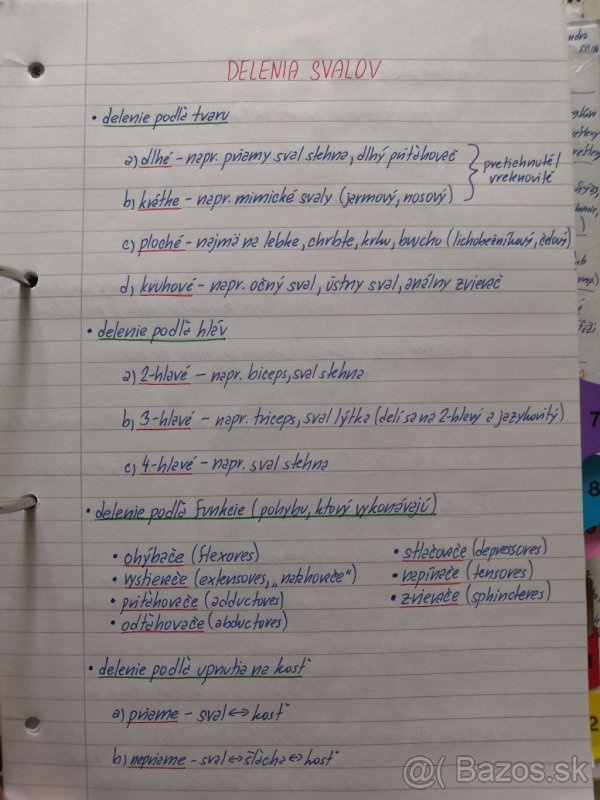 DELENIA SVALOV
• delenie podľa tvaru
a) dlhé - napr. priamy sval stehna, dlhý priťahovač
pretiahnuté/
vretenovité
b) krátke - napr. mimické svaly (jarmový, nosový)
c) ploché - najmä na lebke, chrbte, krku, bruchu (lichobežníkový, čelový)
d) kruhové - napr. očný sval, ústny sval, análny zvierač
• delenie podľa hláv
a) 2-hlavé - napr. biceps, sval stehna
b) 3-hlavé - napr. triceps, sval lýtka (delí sa na 2-hlavý a jazykovitý)
c) 4-hlavé - napr. sval stehna
• delenie podľa funkcie (pohybu, ktorý vykonávajú)
• ohýbače (flexores)
• vystierače (extensores, „naťahovače")
• priťahovače (adductores)
• odťahovače (abductores)
• stláčače (depressores)
• napínače (tensores)
• zvierače (sphincteres)
• delenie podľa upnutia na kosť
a) priame - sval ↔ kosť
b) nepriame - sval ↔ šľacha ↔ kosť
7
8
2
@( Bazos.sk